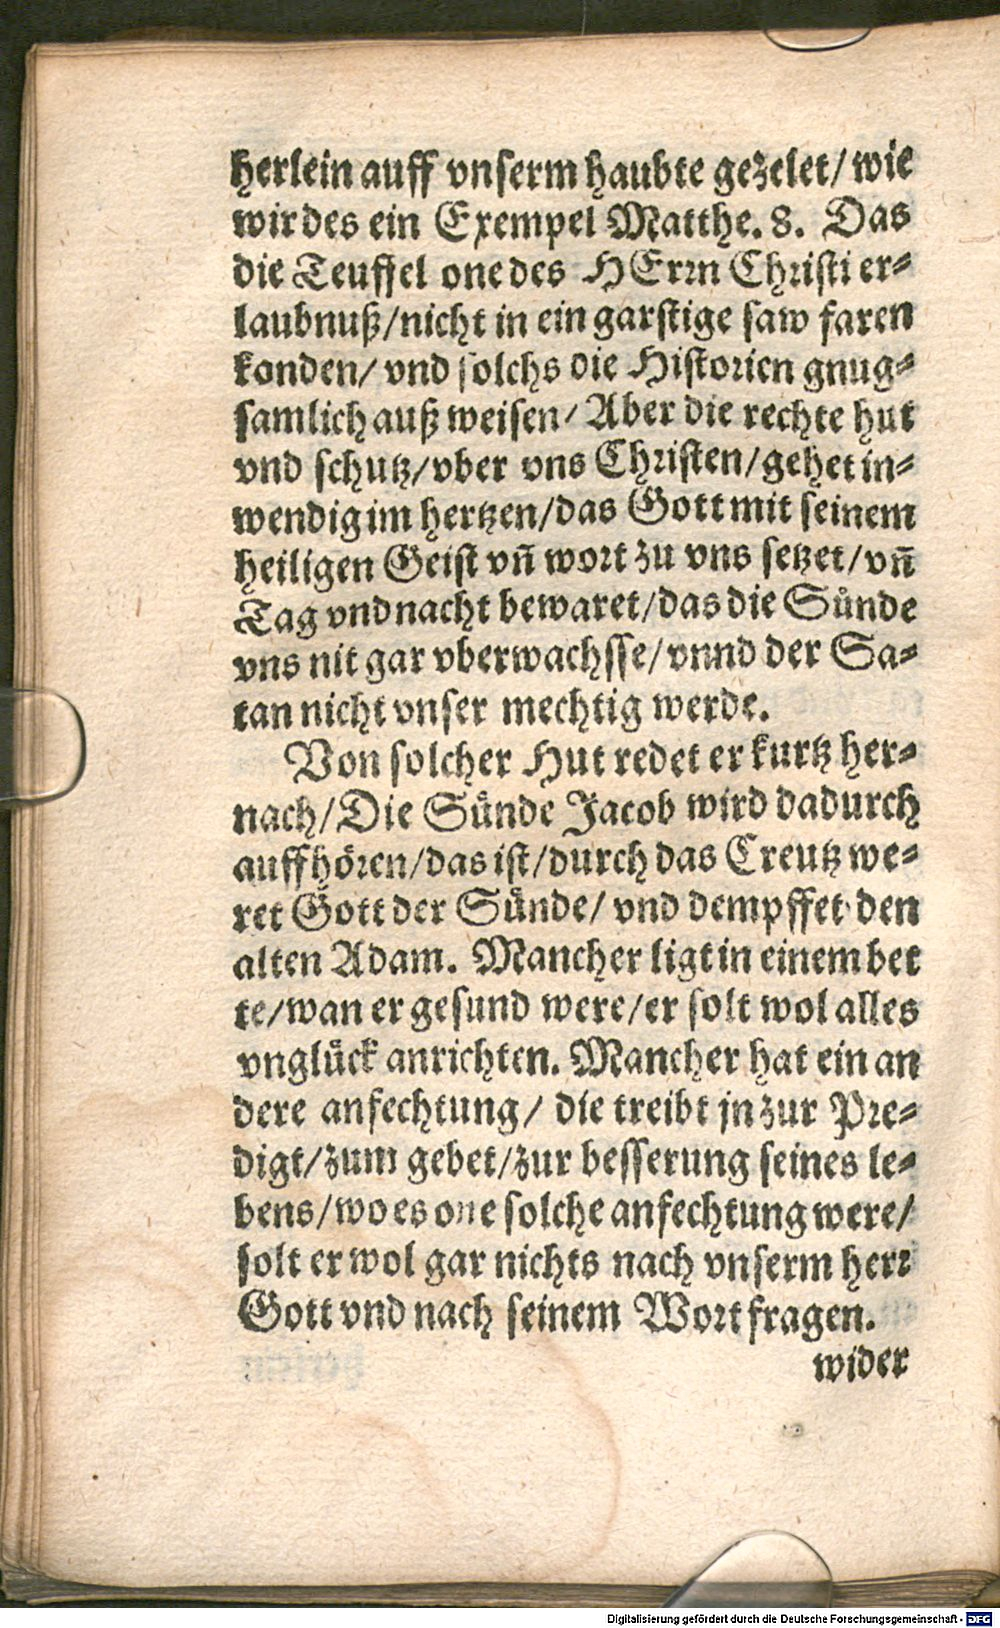 herlein auff vnserm haubte gezelet/ wie
wir des ein Exempel Matthe. 8. Das
die Teuffel one des HErrn Christi er⸗
laubnuß/nicht in ein garstige saw faren
konden/ vnd solchs die Historien gnug⸗
samlich auß weisen/ Aber die rechte hut
vnd schutz/vber vns Christen/gehet in⸗
wendig im hertzen/das Gott mit seinem
heiligen Geist vn̄ wort zu vns setzet/vn̄
Tag vnd nacht bewaret/das die Sůnde
vns nit gar vberwachsse/vnnd der Sa⸗
tan nicht vnser mechtig werde.
Von solcher Hut redet er kurtz her⸗
nach/Die Sůnde Jacob wird dadurch
auffhören/das ist/durch das Creutz we⸗
ret Gott der Sůnde/ vnd dempffet den
alten Adam. Mancher ligt in einem bet
te/wan er gesund were/er solt wol alles
vnglůck anrichten. Mancher hat ein an
dere anfechtung/ die treibt jn zur Pre⸗
digt/zum gebet/zur besserung seines le⸗
bens/wo es one solche anfechtung were/
solt er wol gar nichts nach vnserm herr
Gott vnd nach seinem Wort fragen.
wider
Digitalisierung gefördert durch die Deutsche Forschungsgemeinschaft - DFG